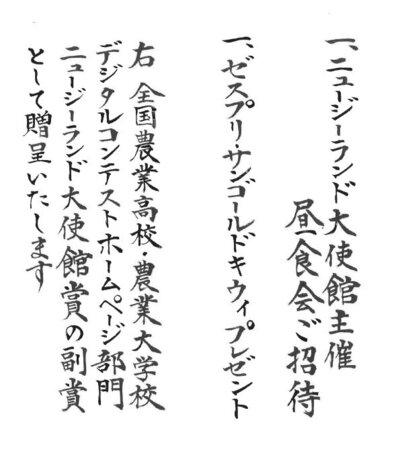 一、ニュージーランド大使館主催
昼食会ご招待
一、ゼスプリ・サンゴールドキウィプレゼント
右 全国農業高校・農業大学校
デジタルコンテストホームページ部門
ニュージーランド大使館賞の副賞
として贈呈いたします